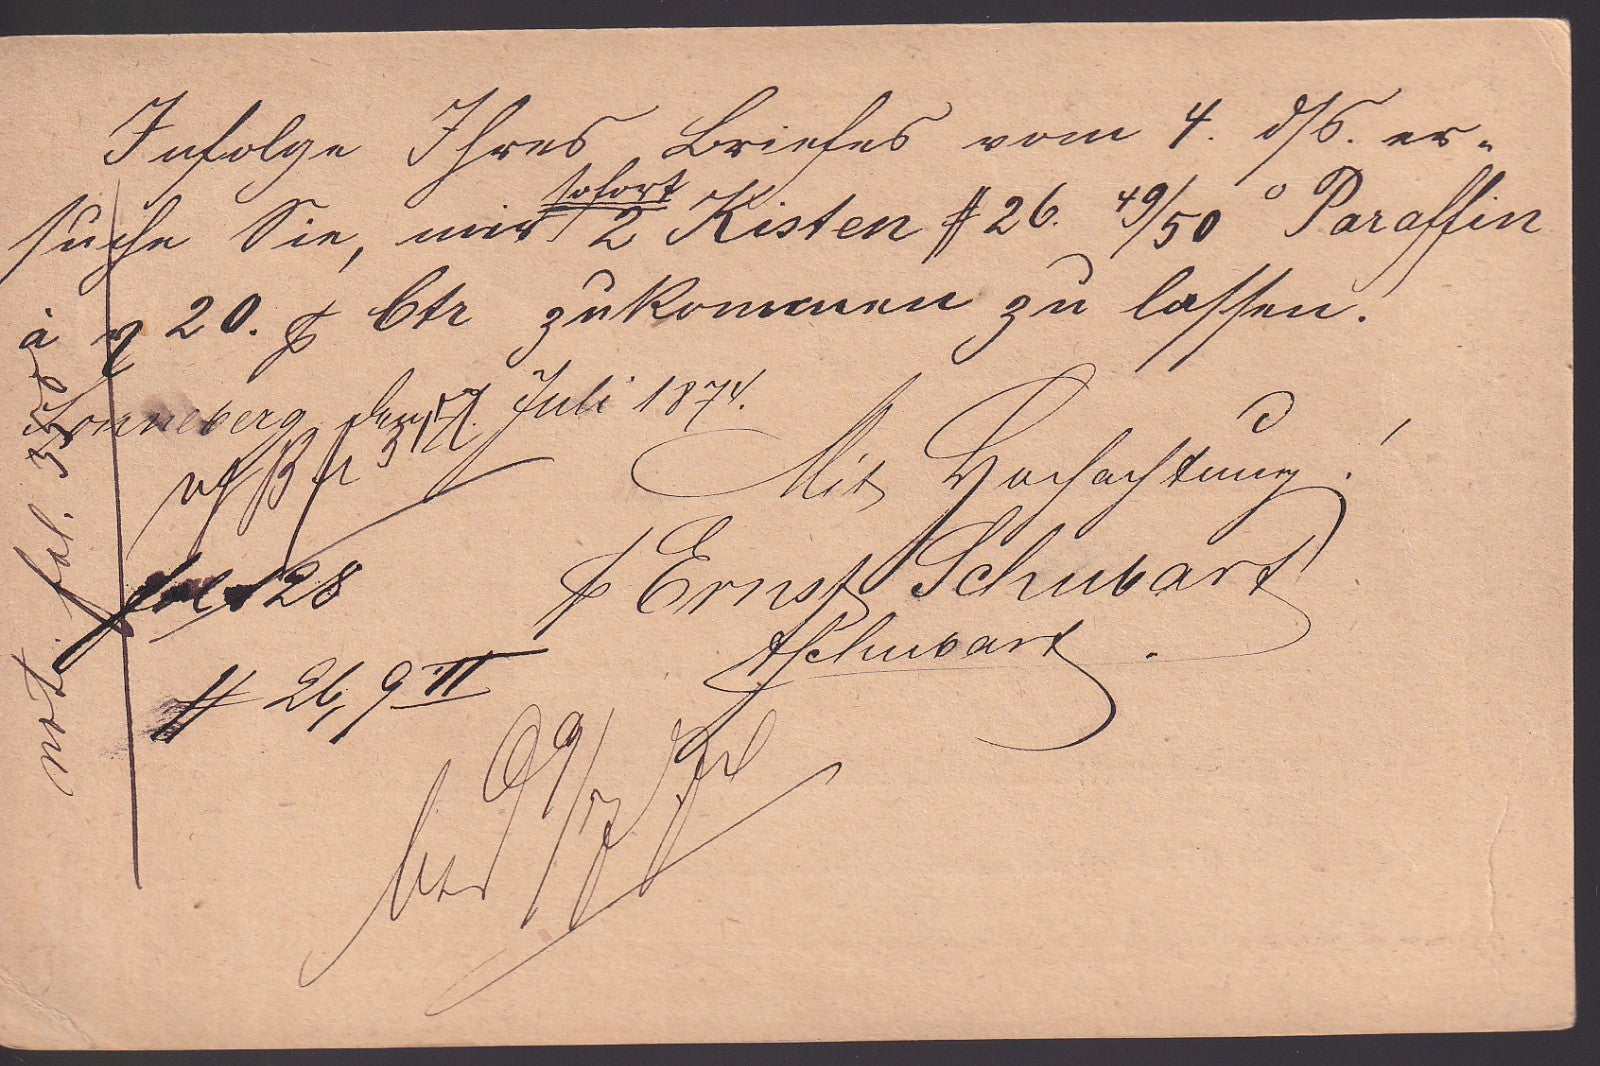 Infolge Ihres Briefes vom 4. d/s. er-
suche Sie, mir sofort 2 Kisten # 26. 49/50° Paraffin
à 20. Ctr zukommen zu lassen.
Sonneberg, den 17. Juli 1874.
Mit Hochachtung!
Ernst Schubart
Schubart
fol 128
# 26, 9
not. fol. 350